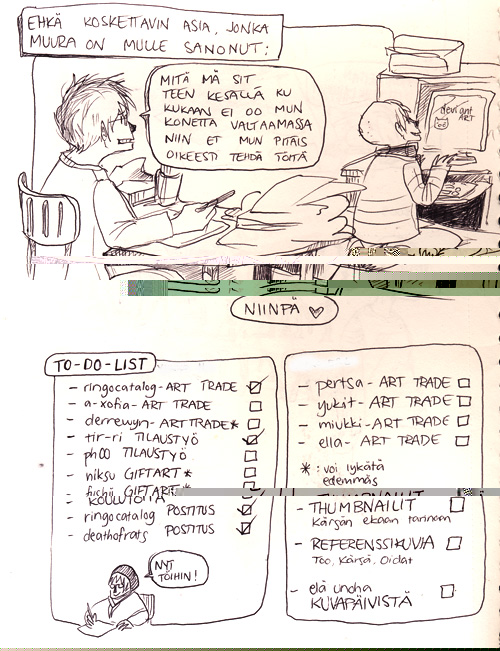 EHKÄ KOSKETTAVIN ASIA, JONKA
MUURA ON MULLE SANONUT:
MITÄ MÄ SIT
TEEN KESÄLLÄ KU
KUKAAN EI OO MUN
KONETTA VALTAAMASSA
NIIN ET MUN PITÄIS
OIKEESTI TEHDÄ TÖITÄ
deviant
ART
NIINPÄ ♡
TO-DO-LIST
- ringocatalog-ART TRADE
- a-xofia-ART TRADE
- derrewyn-ART TRADE*
- tir-ri TILAUSTYÖ
- ph00 TILAUSTYÖ
- niksu GIFTART*
- GIFTART*
- ringocatalog POSTITUS
- deathofrats POSTITUS
NYT
TÖIHIN!
- pertsa-ART TRADE
- yukit-ART TRADE
- miukki-ART TRADE
- ella-ART TRADE
*: voi lykätä
edemmäs
- THUMBNAILIT
Kärsän ekaan tarinaan
- REFERENSSIKUVIA
Too, Kärsä, Oidat
- elä unoha
KUVAPÄIVISTÄ